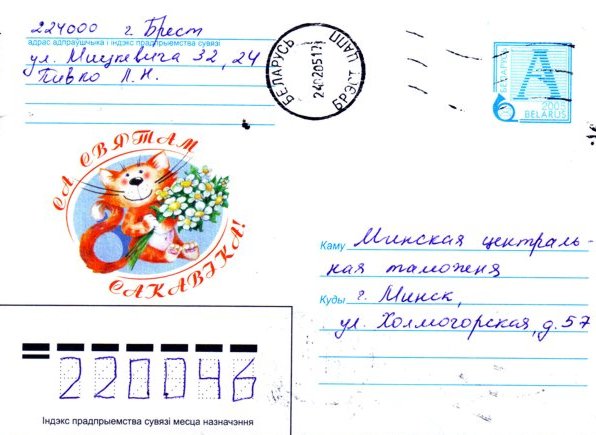 224000 г. Брест
адрас адпраўшчыка і індэкс прадпрыемства сувязі
ул. Мицкевича 32, 24
Пивко Л. Н.
БЕЛАРУСЬ
БРЭСТ
A
2005
BELARUS
СА СВЯТАМ
8
САКАВІКА!
Каму Минская централь-
ная таможня
Куды г. Минск,
ул. Холмогорская, д. 57
220046
Індэкс прадпрыемства сувязі месца назначэння